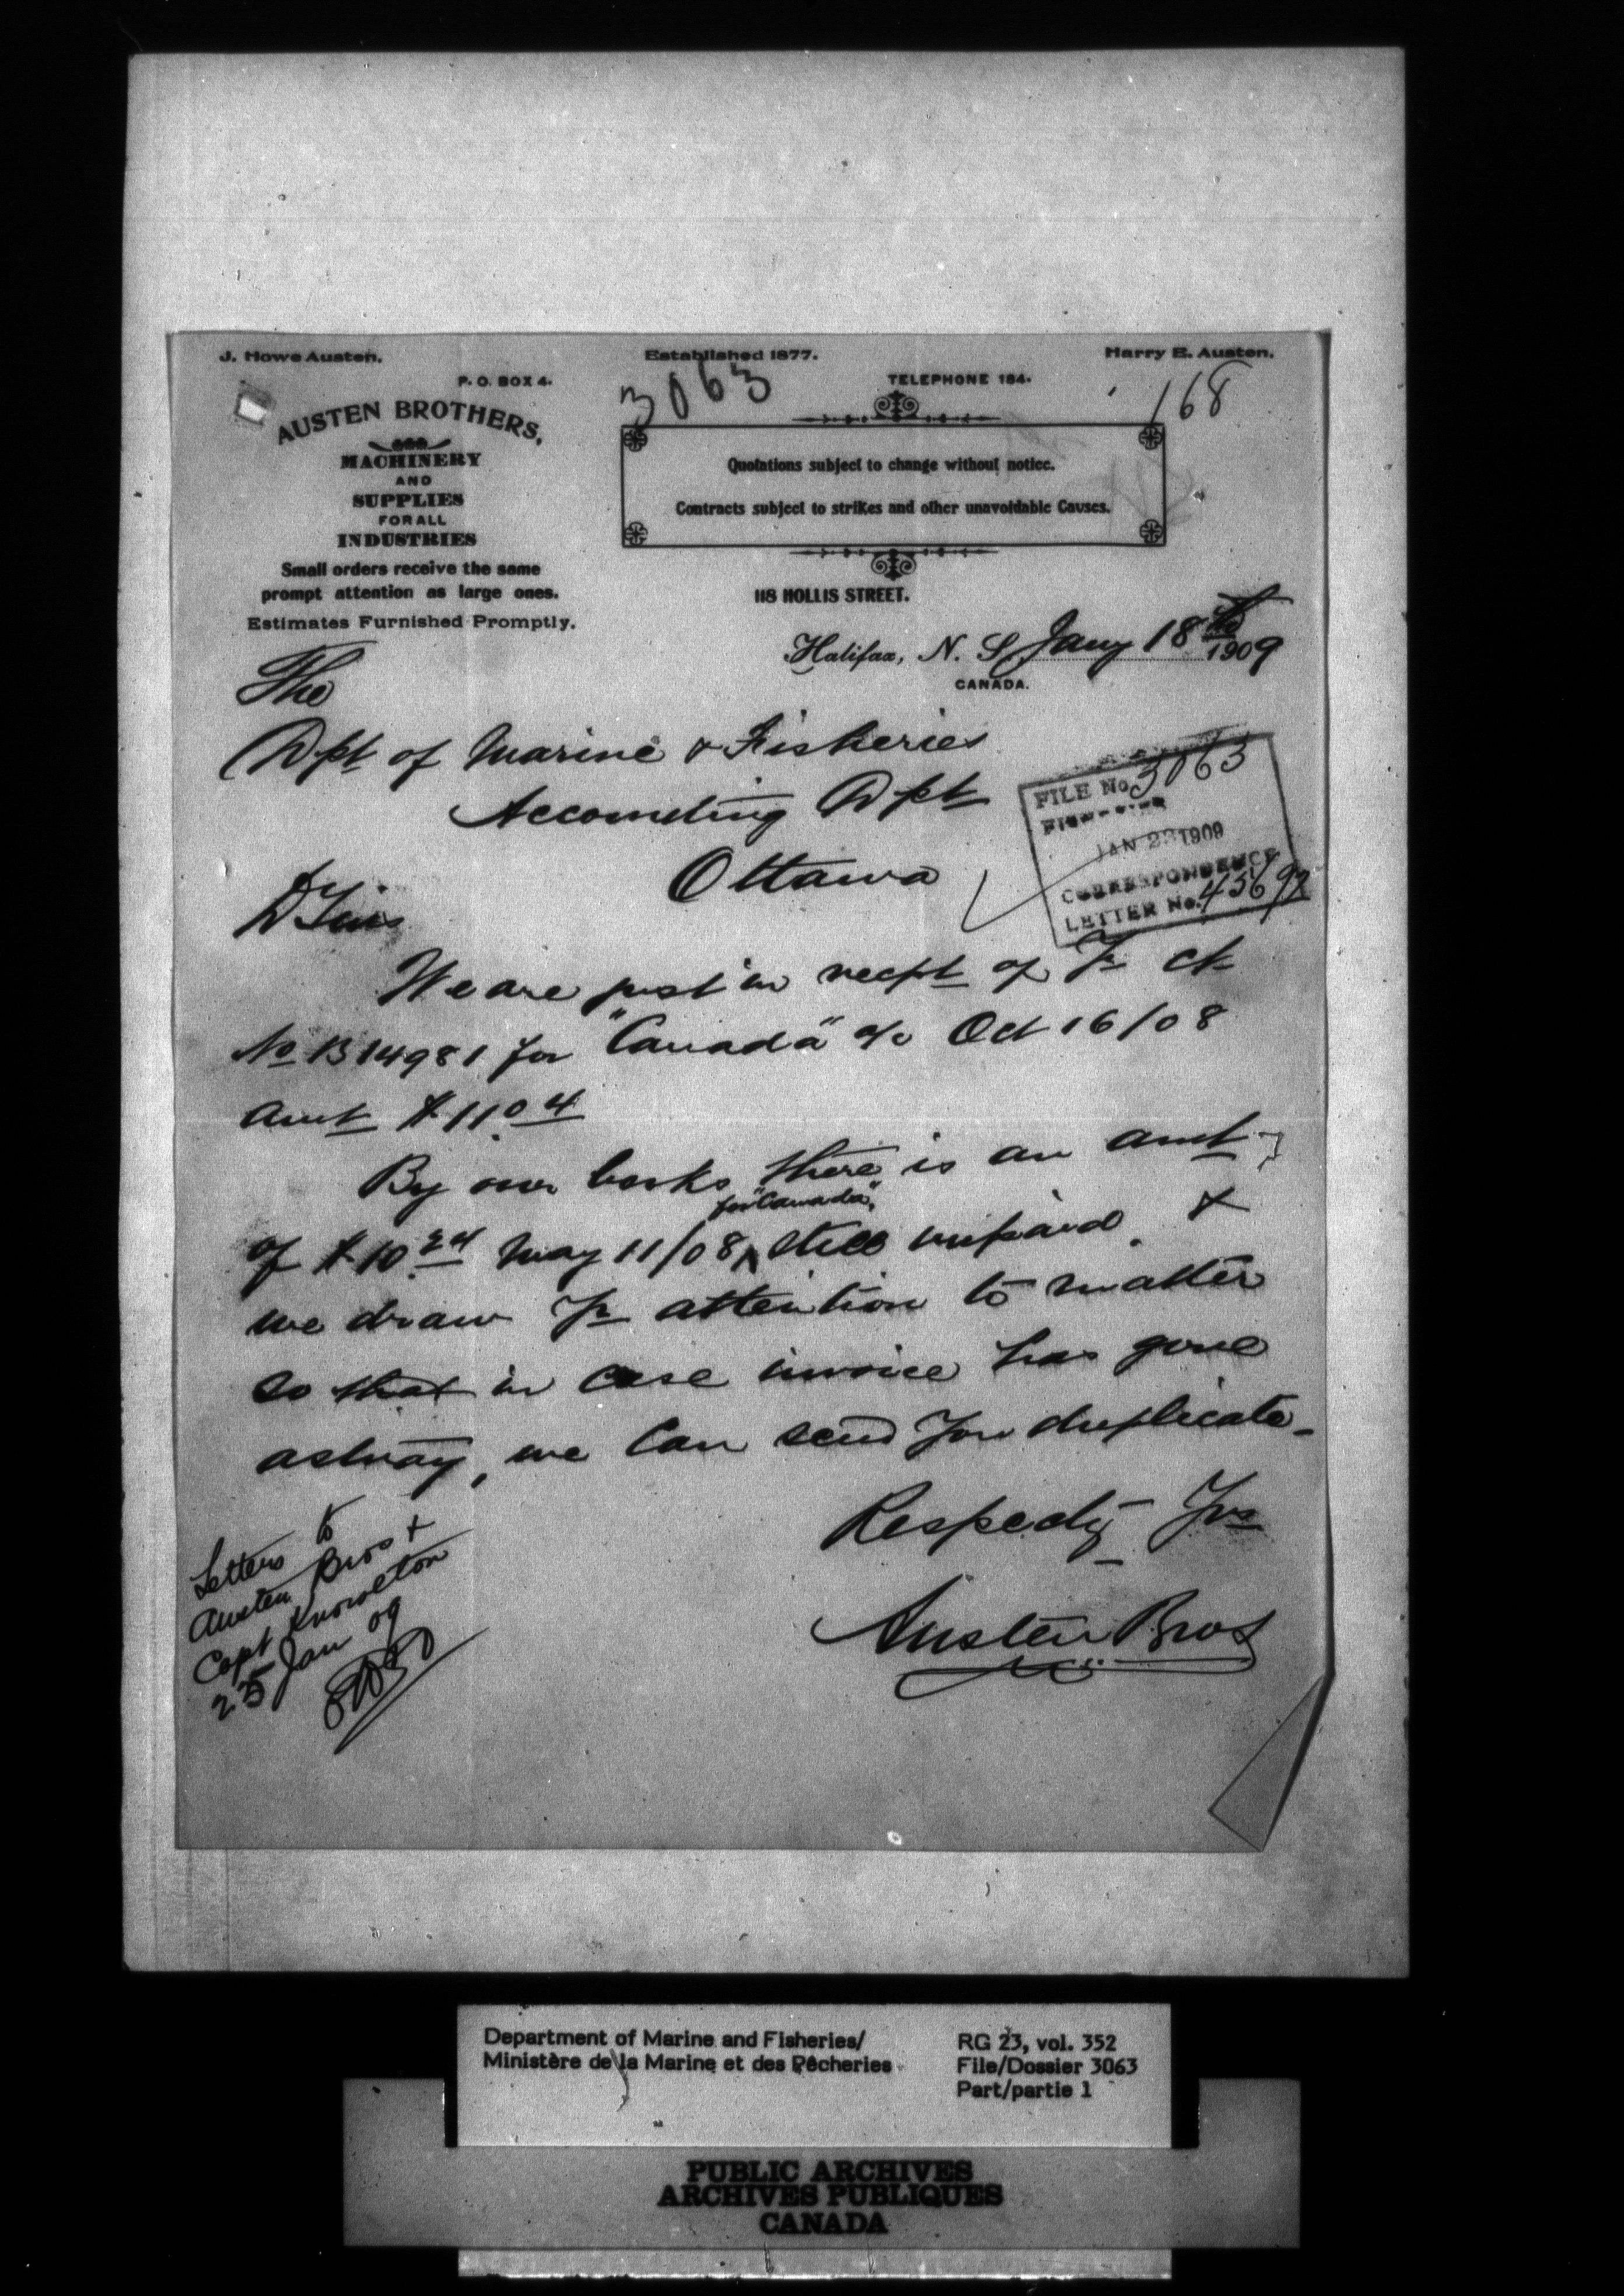 J. Howe Austen.
Established 1877.
Harry E. Austen.
P. O. BOX 4.
TELEPHONE 184.
3063
168
AUSTEN BROTHERS,
MACHINERY
AND
SUPPLIES
FOR ALL
INDUSTRIES
Small orders receive the same
prompt attention as large ones.
Estimates Furnished Promptly.
Quotations subject to change without notice.
Contracts subject to strikes and other unavoidable Causes.
118 HOLLIS STREET.
Halifax, N. S. Jany 18th 1909
CANADA.
The
Dpt of Marine & Fisheries
Accounting Dpt
Ottawa
FILE No. 3063
JAN 22 1909
CORRESPONDENCE
LETTER No. 45692
D Sirs
We are just in recpt of Yr ck
No B14981 for "Canada" a/c Oct 16/08
Amt $11.04
By our books there is an amt
for "Canada",
of $10.24 May 11/08, still unpaid. &
we draw Yr attention to matter
so that in case invoice has gone
astray, we can send you duplicate.
Respecty Yrs
Austen Bros
Letters to
Austen Bros +
Capt Knowlton
25 Jan 09
Department of Marine and Fisheries/
Ministère de la Marine et des Pêcheries
RG 23, vol. 352
File/Dossier 3063
Part/partie 1
PUBLIC ARCHIVES
ARCHIVES PUBLIQUES
CANADA